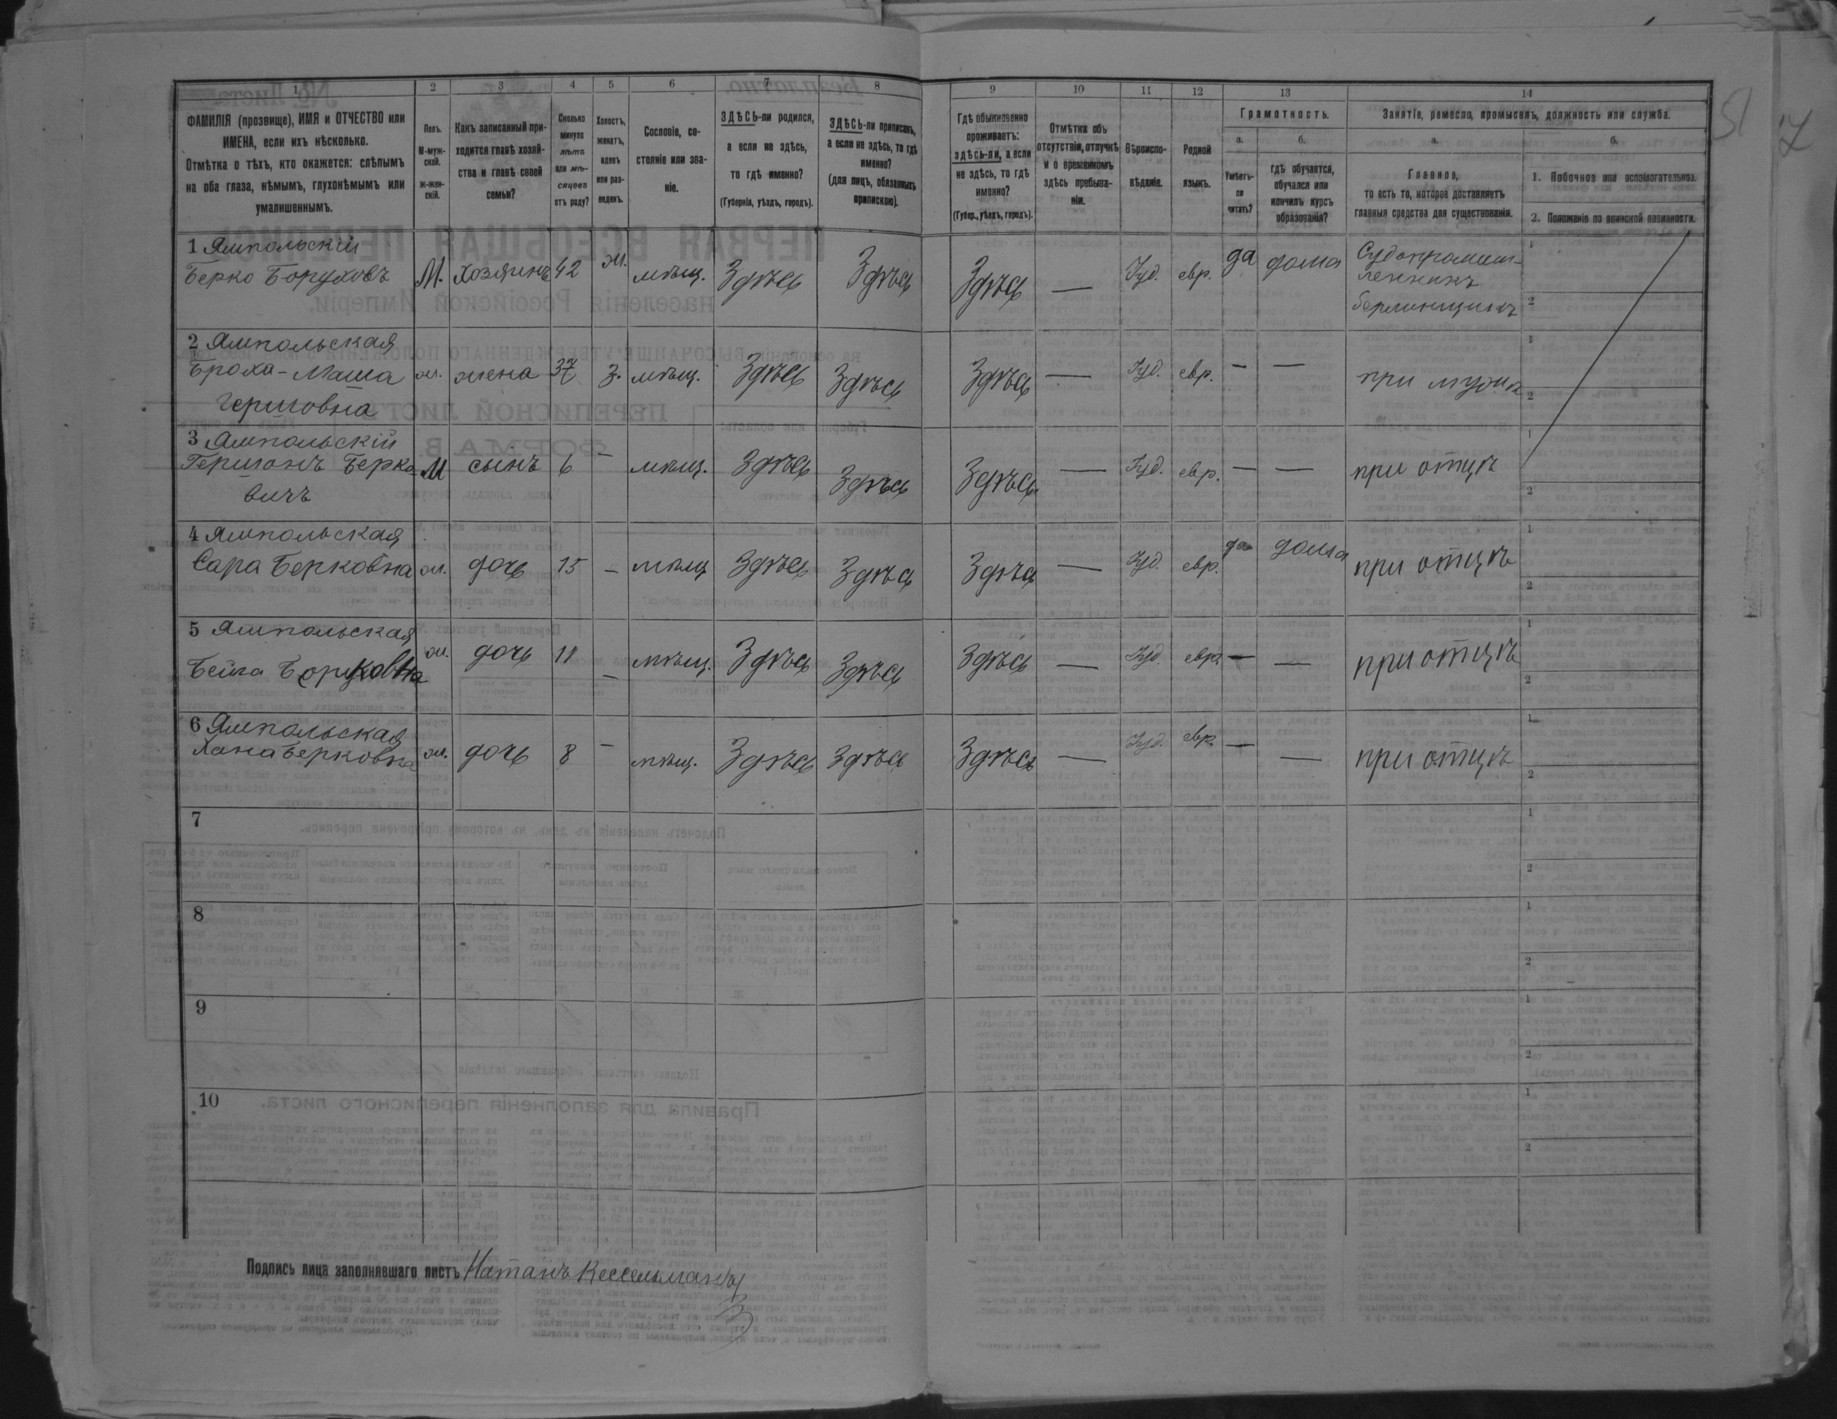 1
2
3
4
5
6
7
8
9
10
11
12
13
14
ФАМИЛІЯ (прозвище), ИМЯ и ОТЧЕСТВО или
ИМЕНА, если ихъ нѣсколько.
Отмѣтка о тѣхъ, кто окажется: слѣпымъ
на оба глаза, нѣмымъ, глухонѣмымъ или
умалишеннымъ.
Полъ.
М-муж-
ской.
ж-жен-
скій.
Какъ записанный при-
ходится главѣ хозяй-
ства и главѣ своей
семьи?
Сколько
минуло
лѣтъ
или мѣ-
сяцевъ
отъ роду?
Холостъ,
женатъ,
вдовъ
или раз-
веденъ.
Сословіе, со-
стояніе или зва-
ніе.
ЗДѢСЬ-ли родился,
а если не здѣсь,
то гдѣ именно?
(Губернія, уѣздъ, городъ).
ЗДѢСЬ-ли приписанъ,
а если не здѣсь, то гдѣ
именно?
(для лицъ, обязанныхъ
припискою).
Гдѣ обыкновенно
проживаетъ:
здѣсь-ли, а если
не здѣсь, то гдѣ
именно?
(Губер., уѣздъ, городъ).
Отмѣтка объ
отсутствіи, отлучкѣ
и о временномъ
здѣсь пребыва-
ніи.
Вѣроиспо-
вѣданіе.
Родной
языкъ.
Грамотность.
а.
Умѣетъ-
ли
читать?
б.
гдѣ обучается,
обучался или
кончилъ курсъ
образованія?
Занятіе, ремесло, промыселъ, должность или служба.
а.
Главное,
то есть то, которое доставляетъ
главныя средства для существованія.
б.
1. Побочное или вспомогательное.
2. Положеніе по воинской повинности.
1 Ямпольскій
Берко Боруховъ М. хозяинъ 42 ж. мѣщ. Здѣсь Здѣсь Здѣсь — Іуд. евр. да дома Судопромыш-
ленникъ
берлинщикъ
2 Ямпольская
Броха-Маша ж. жена 37 з. мѣщ. Здѣсь Здѣсь Здѣсь — Іуд. евр. — — при мужѣ
Гершовна
3 Ямпольскій
Гершонъ Берко- М сынъ 6 — мѣщ. Здѣсь Здѣсь Здѣсь — Іуд. евр. — — при отцѣ
вичъ
4 Ямпольская
Сара Берковна ж. дочь 15 — мѣщ Здѣсь Здѣсь Здѣсь — Іуд. евр. да дома при отцѣ
5 Ямпольская
Бейла ж. дочь 11 — мѣщ. Здѣсь Здѣсь Здѣсь — Іуд. евр. — — при отцѣ
6 Ямпольская
Хана Берковна ж. дочь 8 — мѣщ. Здѣсь Здѣсь Здѣсь — Іуд. евр. — — при отцѣ
7
8
9
10
Подпись лица заполнявшаго листъ Натанъ Кессельманъ